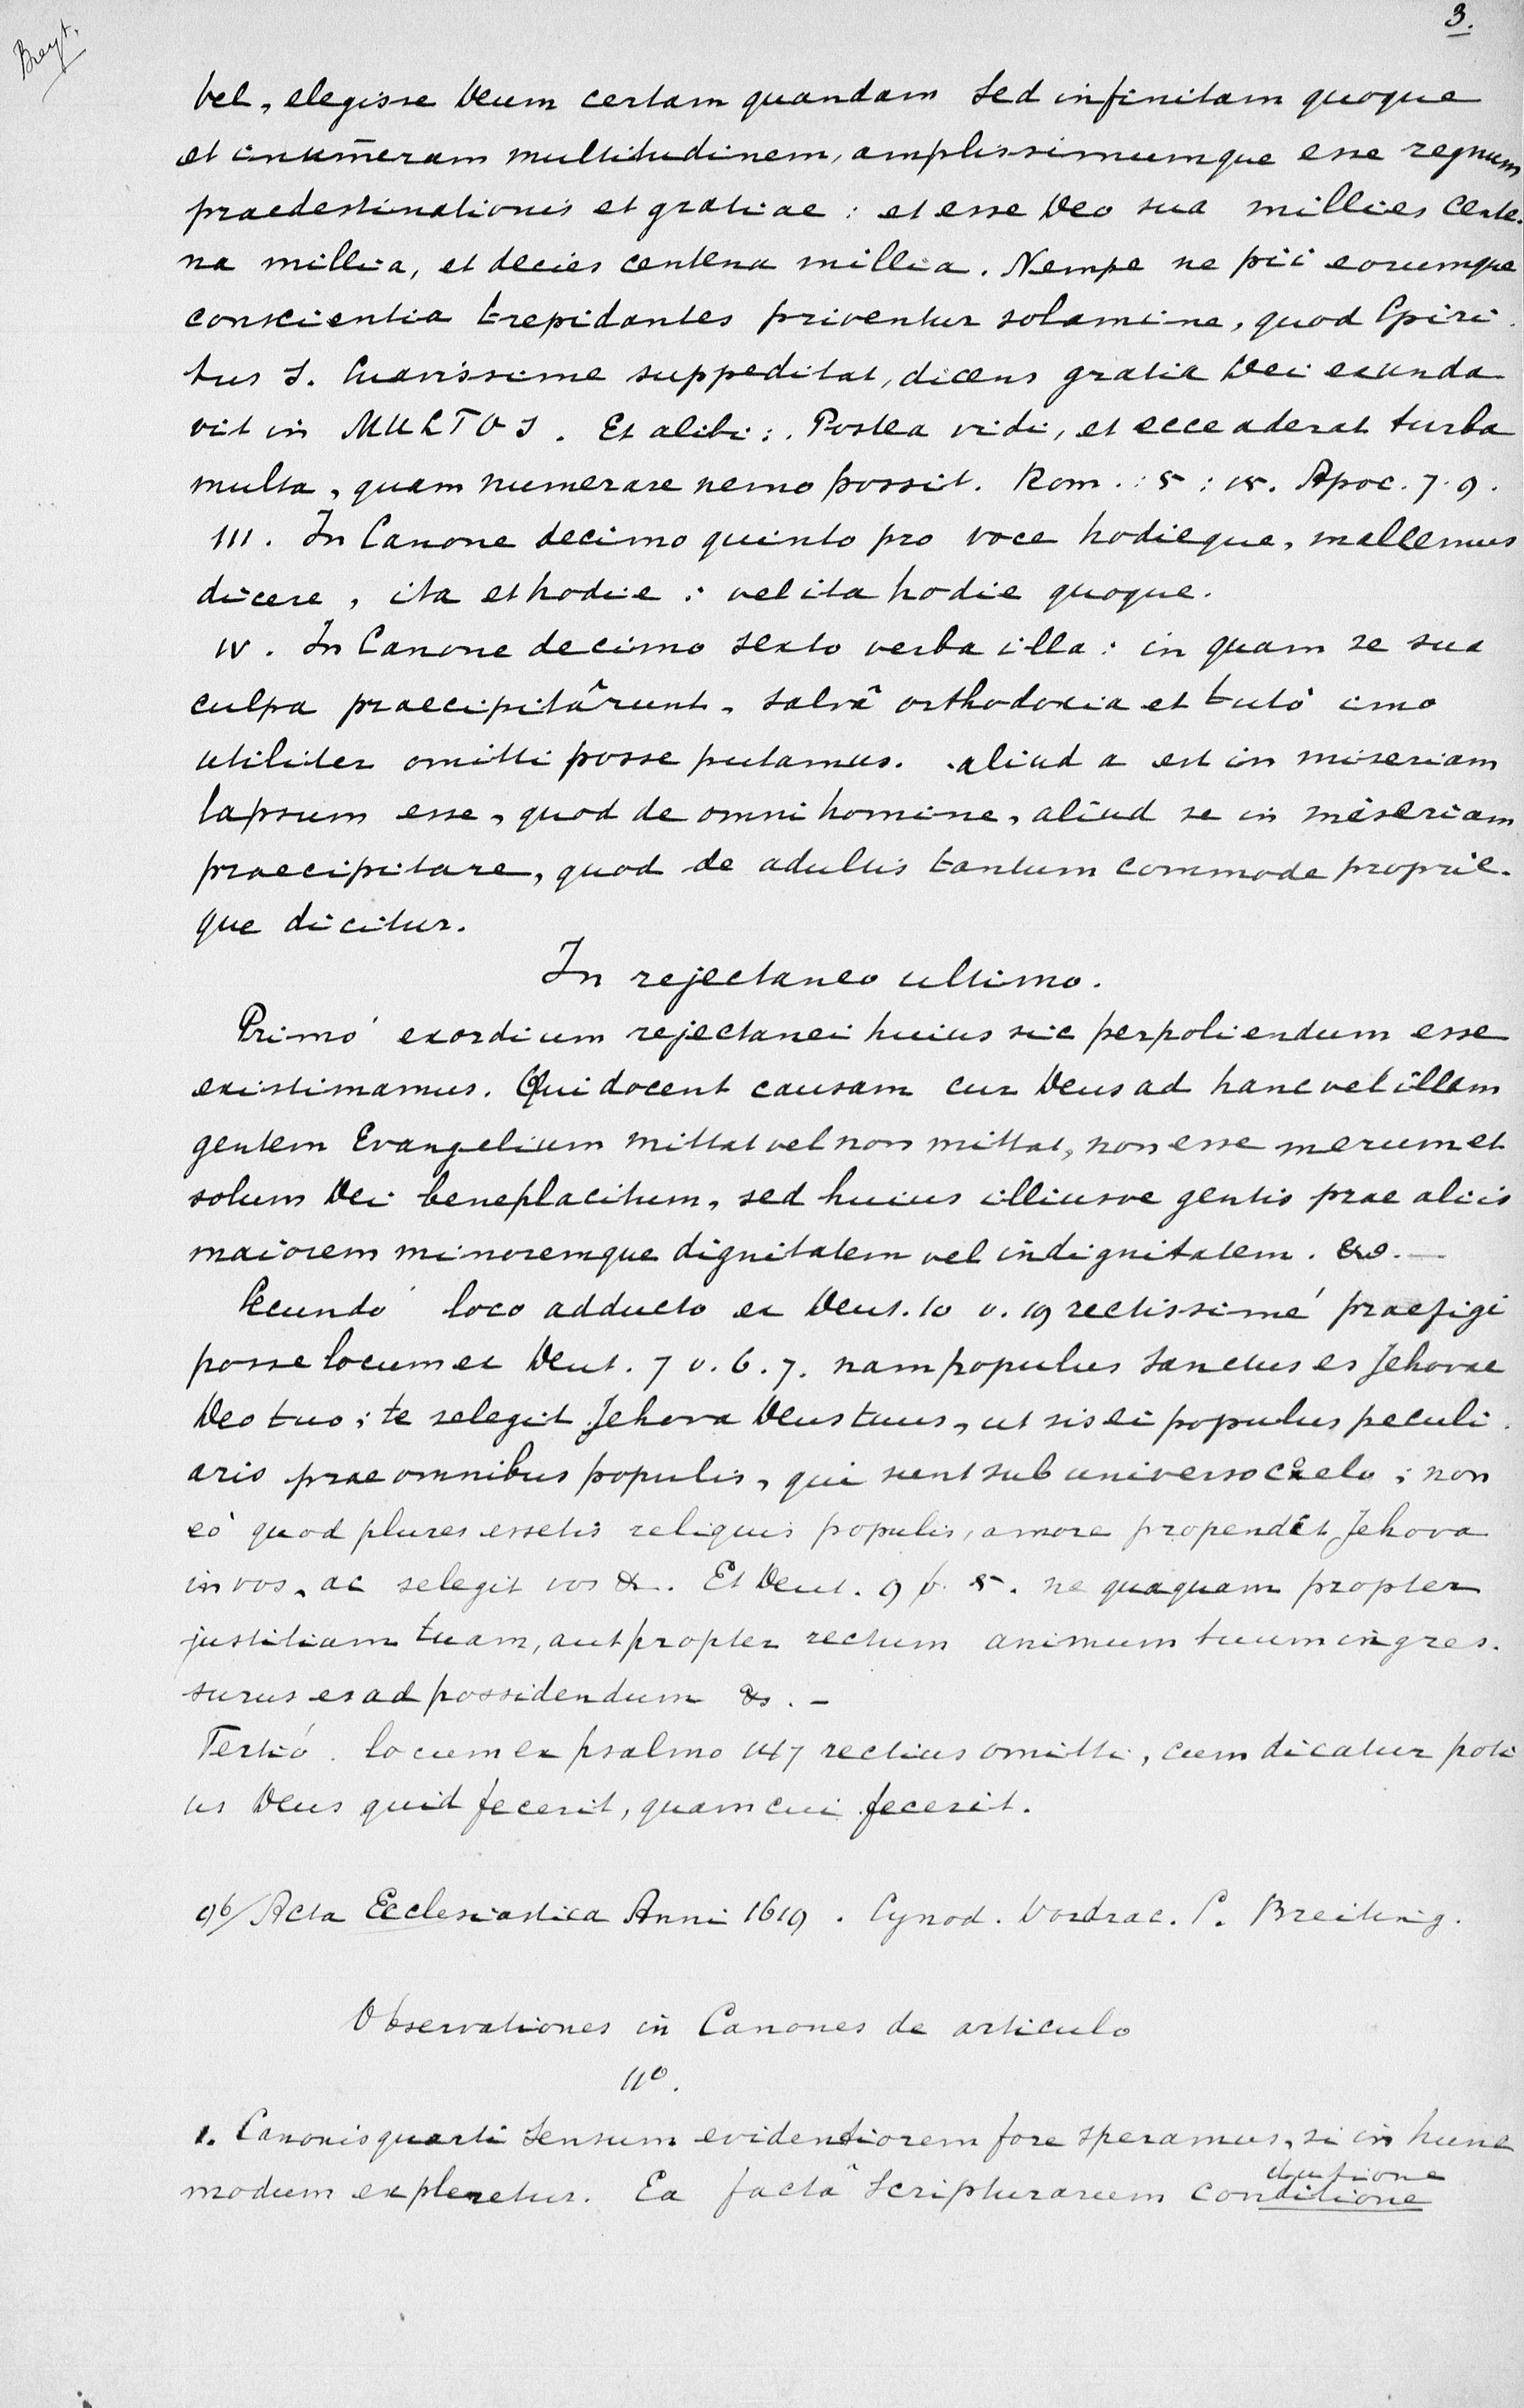 3.
Breyt.
vel, elegisse Deum certam quandam sed infinitam quoque
et inum̄eram multitudinem, amplissimumque esse regnum
praedestinationis et gratiae : et esse Deo sua millies cente-
na millia, et decies centena millia. Nempe ne pii eorumque
conscientia trepidantes priventur solamine, quod Spiri-
tus S. suavissime suppeditat, dicens gratia Dei exunda
vit in MULTOS. Et alibi : Postea vidi, et ecce aderat turba
multa, quam numerare nemo possit. Rom. : 5 : 15. Apoc. 7. 9.
III. In Canone decimo quinto pro voce hodieque, mallemus
dicere, ita et hodie : vel ita hodie quoque.
IV. In Canone decimo sexto verba illa : in quam se sua
culpa praecipitârunt, salvâ orthodoxia et tutò imo
utiliter omitti posse putamus. aliud a est in miseriam
lapsum esse, quod de omni homine, aliud se in miseriam
praecipitare, quod de adultis tantum commode proprie-
que dicitur.
In rejectaneo ultimo.
Primó exordium rejectanei huius sic perpoliendum esse
existimamus. Qui docent causam cur Deus ad hanc vel illam
gentem Evangelium mittat vel non mittat, non esse merum et
solum Dei beneplacitum, sed huius illiusve gentis prae aliis
maiorem minoremque dignitatem vel indignitatem. &c. —
Secundó loco adducto ex Deut. 10 v. 19 rectissimé praefigi
posse locum ex Deut. 7 v. 6. 7. nam populus sanctus es Jehovae
Deo tuo ; te selegit Jehova Deus tuus, ut sis ei populus peculi-
aris prae omnibus populis, qui sunt sub universo coelo ; non
eò quod plures essetis reliquis populis, amore propendet Jehova
in vos, ac selegit vos &. Et Deut. 9 v. 5. ne quaquam propter
justitiam tuam, aut propter rectum animum tuum ingres-
surus es ad possidendum &. –
Tertió. locum ex psalmo 147 rectius omitti, cum dicatur poti
us Deus quid fecerit, quam cui fecerit.
96/ Acta Ecclesiastica Anni 1619. Synod. Dordrac. P. Breiting.
Observationes in Canones de articulo
IIº.
1. Canonis quarti sensum evidentiorem fore speramus, si in hunc
modum expleretur. Ea factâ Scripturarum conditione